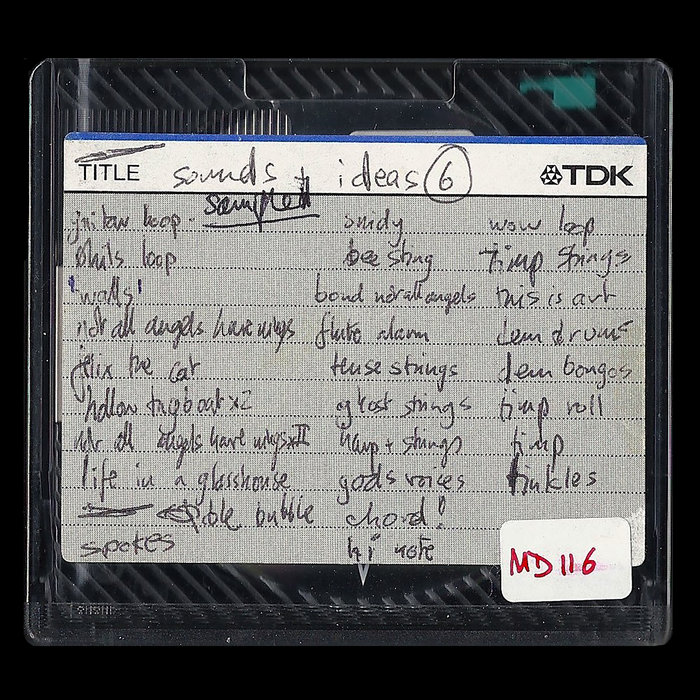 TITLE sounds + ideas 6 TDK
sampled
guitar loop
phils loop
'walls'
not all angels have wings
felix the cat
hollow tugboat x2
not all angels have wings II
life in a glasshouse
bubble
spokes
sindy
bee sting
bond not all angels
flute alarm
tense strings
ghost strings
harp + strings
gods voices
chord!
hi note
wow loop
timp strings
this is art
dem drums
dem bongos
timp roll
timp
tinkles
MD 116